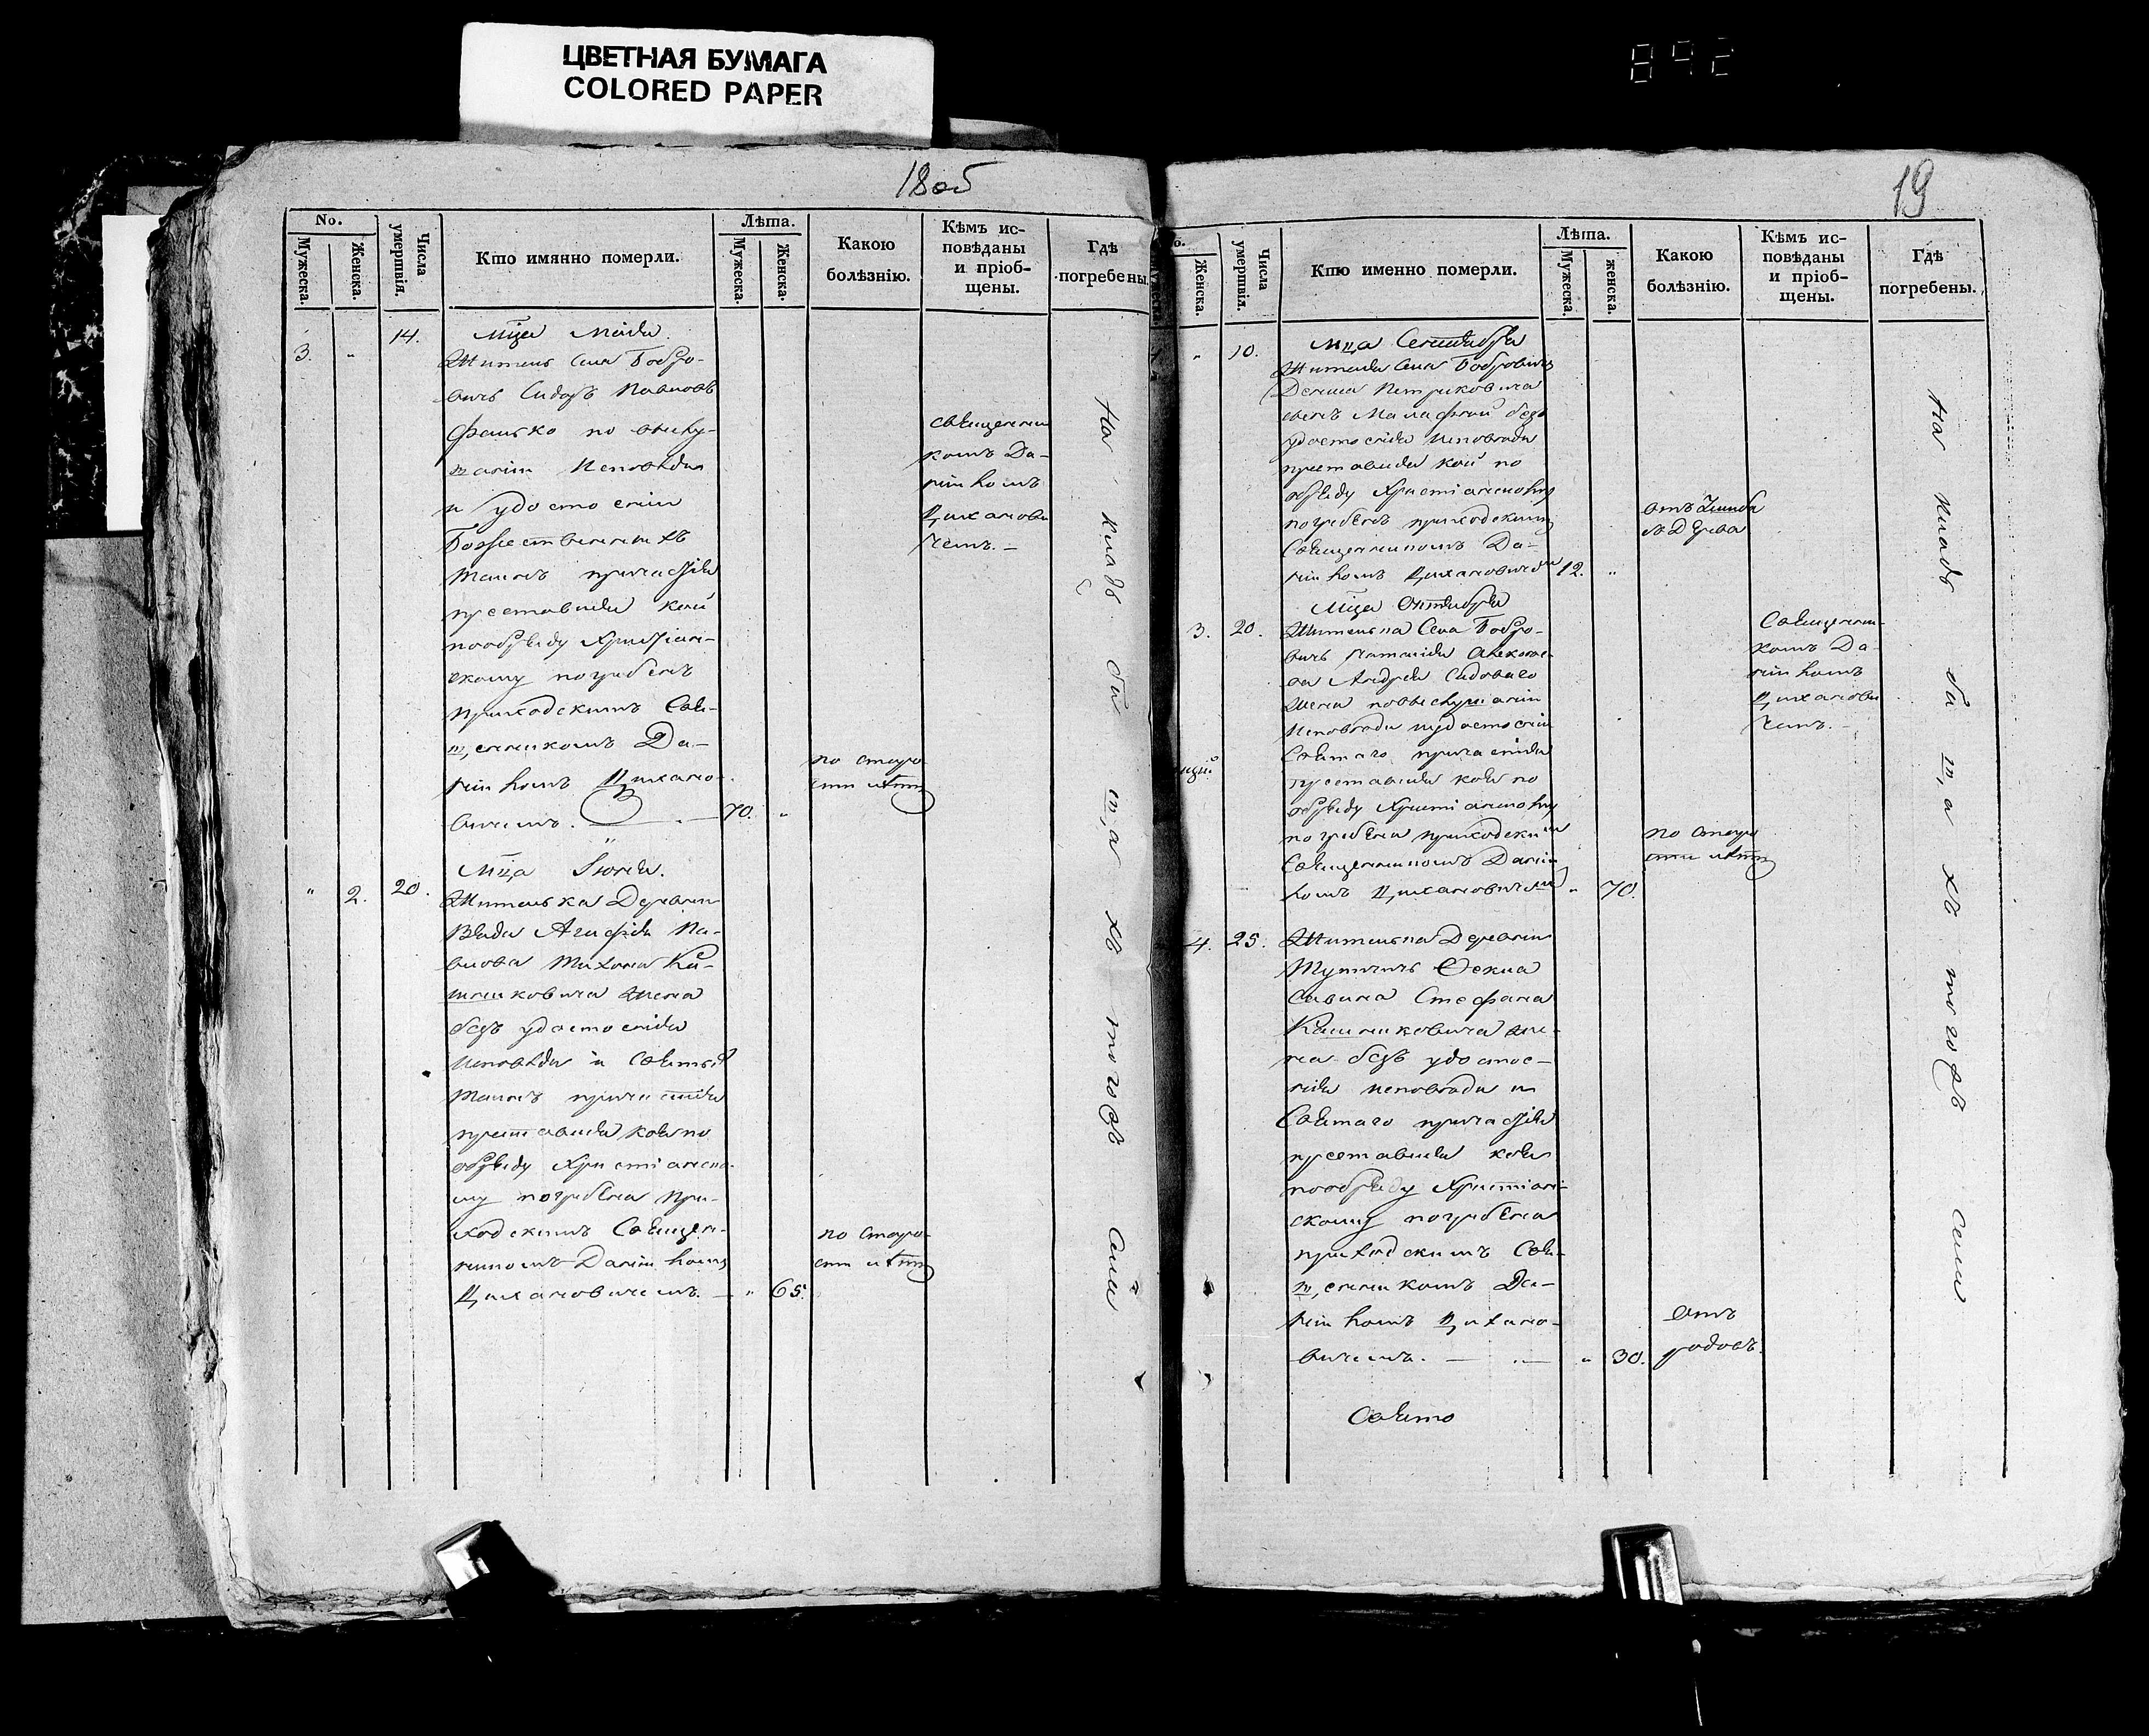 ЦВЕТНАЯ БУМАГА
COLORED PAPER
892
18об
No.
Мужеска.
Женска.
Числа умертвія.
Кто имянно померли.
Лѣта.
Мужеска.
Женска.
Какою
болѣзнію.
Кѣмъ ис-
повѣданы
и пріоб-
щены.
Гдѣ
погребены.
14.
Мца Маія
3.
Житель села Бобро-
вичь Сидоръ Павловъ
по выслу-
шаніи Исповѣди
и удостоеніи
Божественныхъ
таинъ причастія
преставися кой
по обряду Христіан-
скому погребенъ
приходскимъ Свя-
щенникомъ Да-
ніиломъ Цихано-
вичемъ.
70.
по старо-
сти лѣтъ
священни-
комъ Да-
ніиломъ
Циханови-
чемъ.
На кладбищахъ того жъ села
Мца Іюня.
2.
20.
Жителька Деревни
Вяда Агафія Па-
влова Тихона Ка-
шникович жена
безъ удостоенія
Исповѣди и Святыхъ
таинъ причастія
преставися коя по
обряду Христіанско-
му погребена при-
ходскимъ Священ-
никомъ Даніиломъ
Цихановичемъ.
65.
по старо-
сти лѣтъ
19
Женска.
Числа умертвія.
Кто именно померли.
Лѣта.
Мужеска.
женска.
Какою
болѣзнію.
Кѣмъ ис-
повѣданы
и пріоб-
щены.
Гдѣ
погребены.
10.
Мца Сентября
Жителя села Бобровичь
Петриковича
сынъ Малафей безъ
удостоенія исповѣди
преставися кой по
обряду Христіанскому
погребенъ приходскимъ
Священникомъ Да-
ніиломъ Цихановичемъ
12.
съ древа
Мца Октября
3.
20.
Жителька Села Бобро-
вичь Наталія Алексѣе-
ва Андрея
жена по выслушаніи
исповѣди и удостоеніи
Святаго причастія
преставися коя по
обряду Христіанскому
погребена приходскимъ
Священникомъ Даніи-
ломъ Цихановичемъ
70.
по старо-
сти лѣтъ
Священни-
комъ Да-
ніиломъ
Циханови-
чемъ.
На кладбищахъ того жъ села
4.
25.
Жителька Деревни
Ѳекла
Савина Стефана
Кашниковича же-
на безъ удостое-
нія исповѣди и
Святаго причастія
преставися коя
по обряду Христіан-
скому погребена
приходскимъ Свя-
щенникомъ Да-
ніиломъ Цихано-
вичемъ.
30.
Отъ
родовъ.
Свято